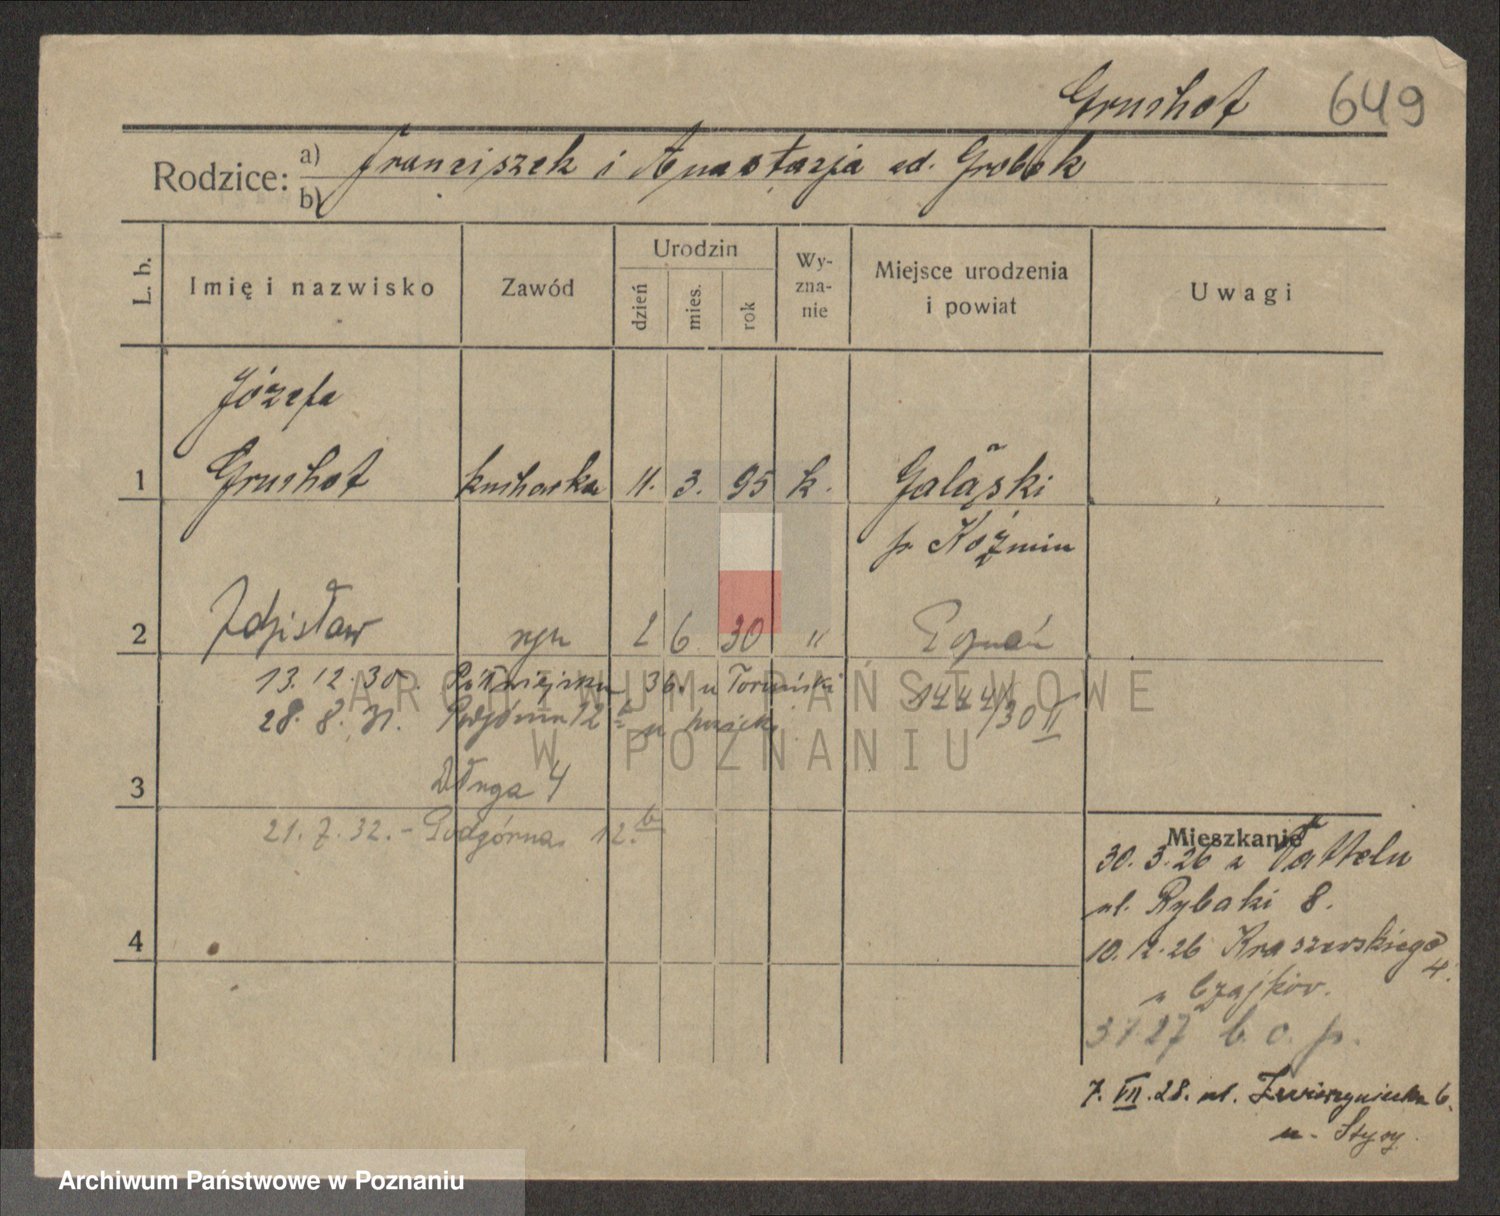 Gruchot 649
Rodzice: a) Franciszek i Anastazja od. Grobek
b)
L. b.
Imię i nazwisko
Zawód
Urodzin
dzień
mies.
rok
Wy-
zna-
nie
Miejsce urodzenia
i powiat
Uwagi
Józefa
1 Gruchot kucharka 11. 3. 95 k. Galąski
p. Koźmin
2 Zdzisław syn 2 6 30 " Poznań
13. 12. 30. Półwiejska 36. u Toruński
28. 8. 31. Podgórna 12 b u
/30 II
3 Długa 4
21. 7. 32. - Podgórna 12. b
4
Mieszkanie
30. 3. 26 z
ul. Rybaki 8.
10. 12. 26 Kraszewskiego
4.
u Czajków.
3 1 27 b. o. p.
7. VII. 28. ul. Zwierzyniecka 6.
u
ARCHIWUM PAŃSTWOWE
W POZNANIU
Archiwum Państwowe w Poznaniu